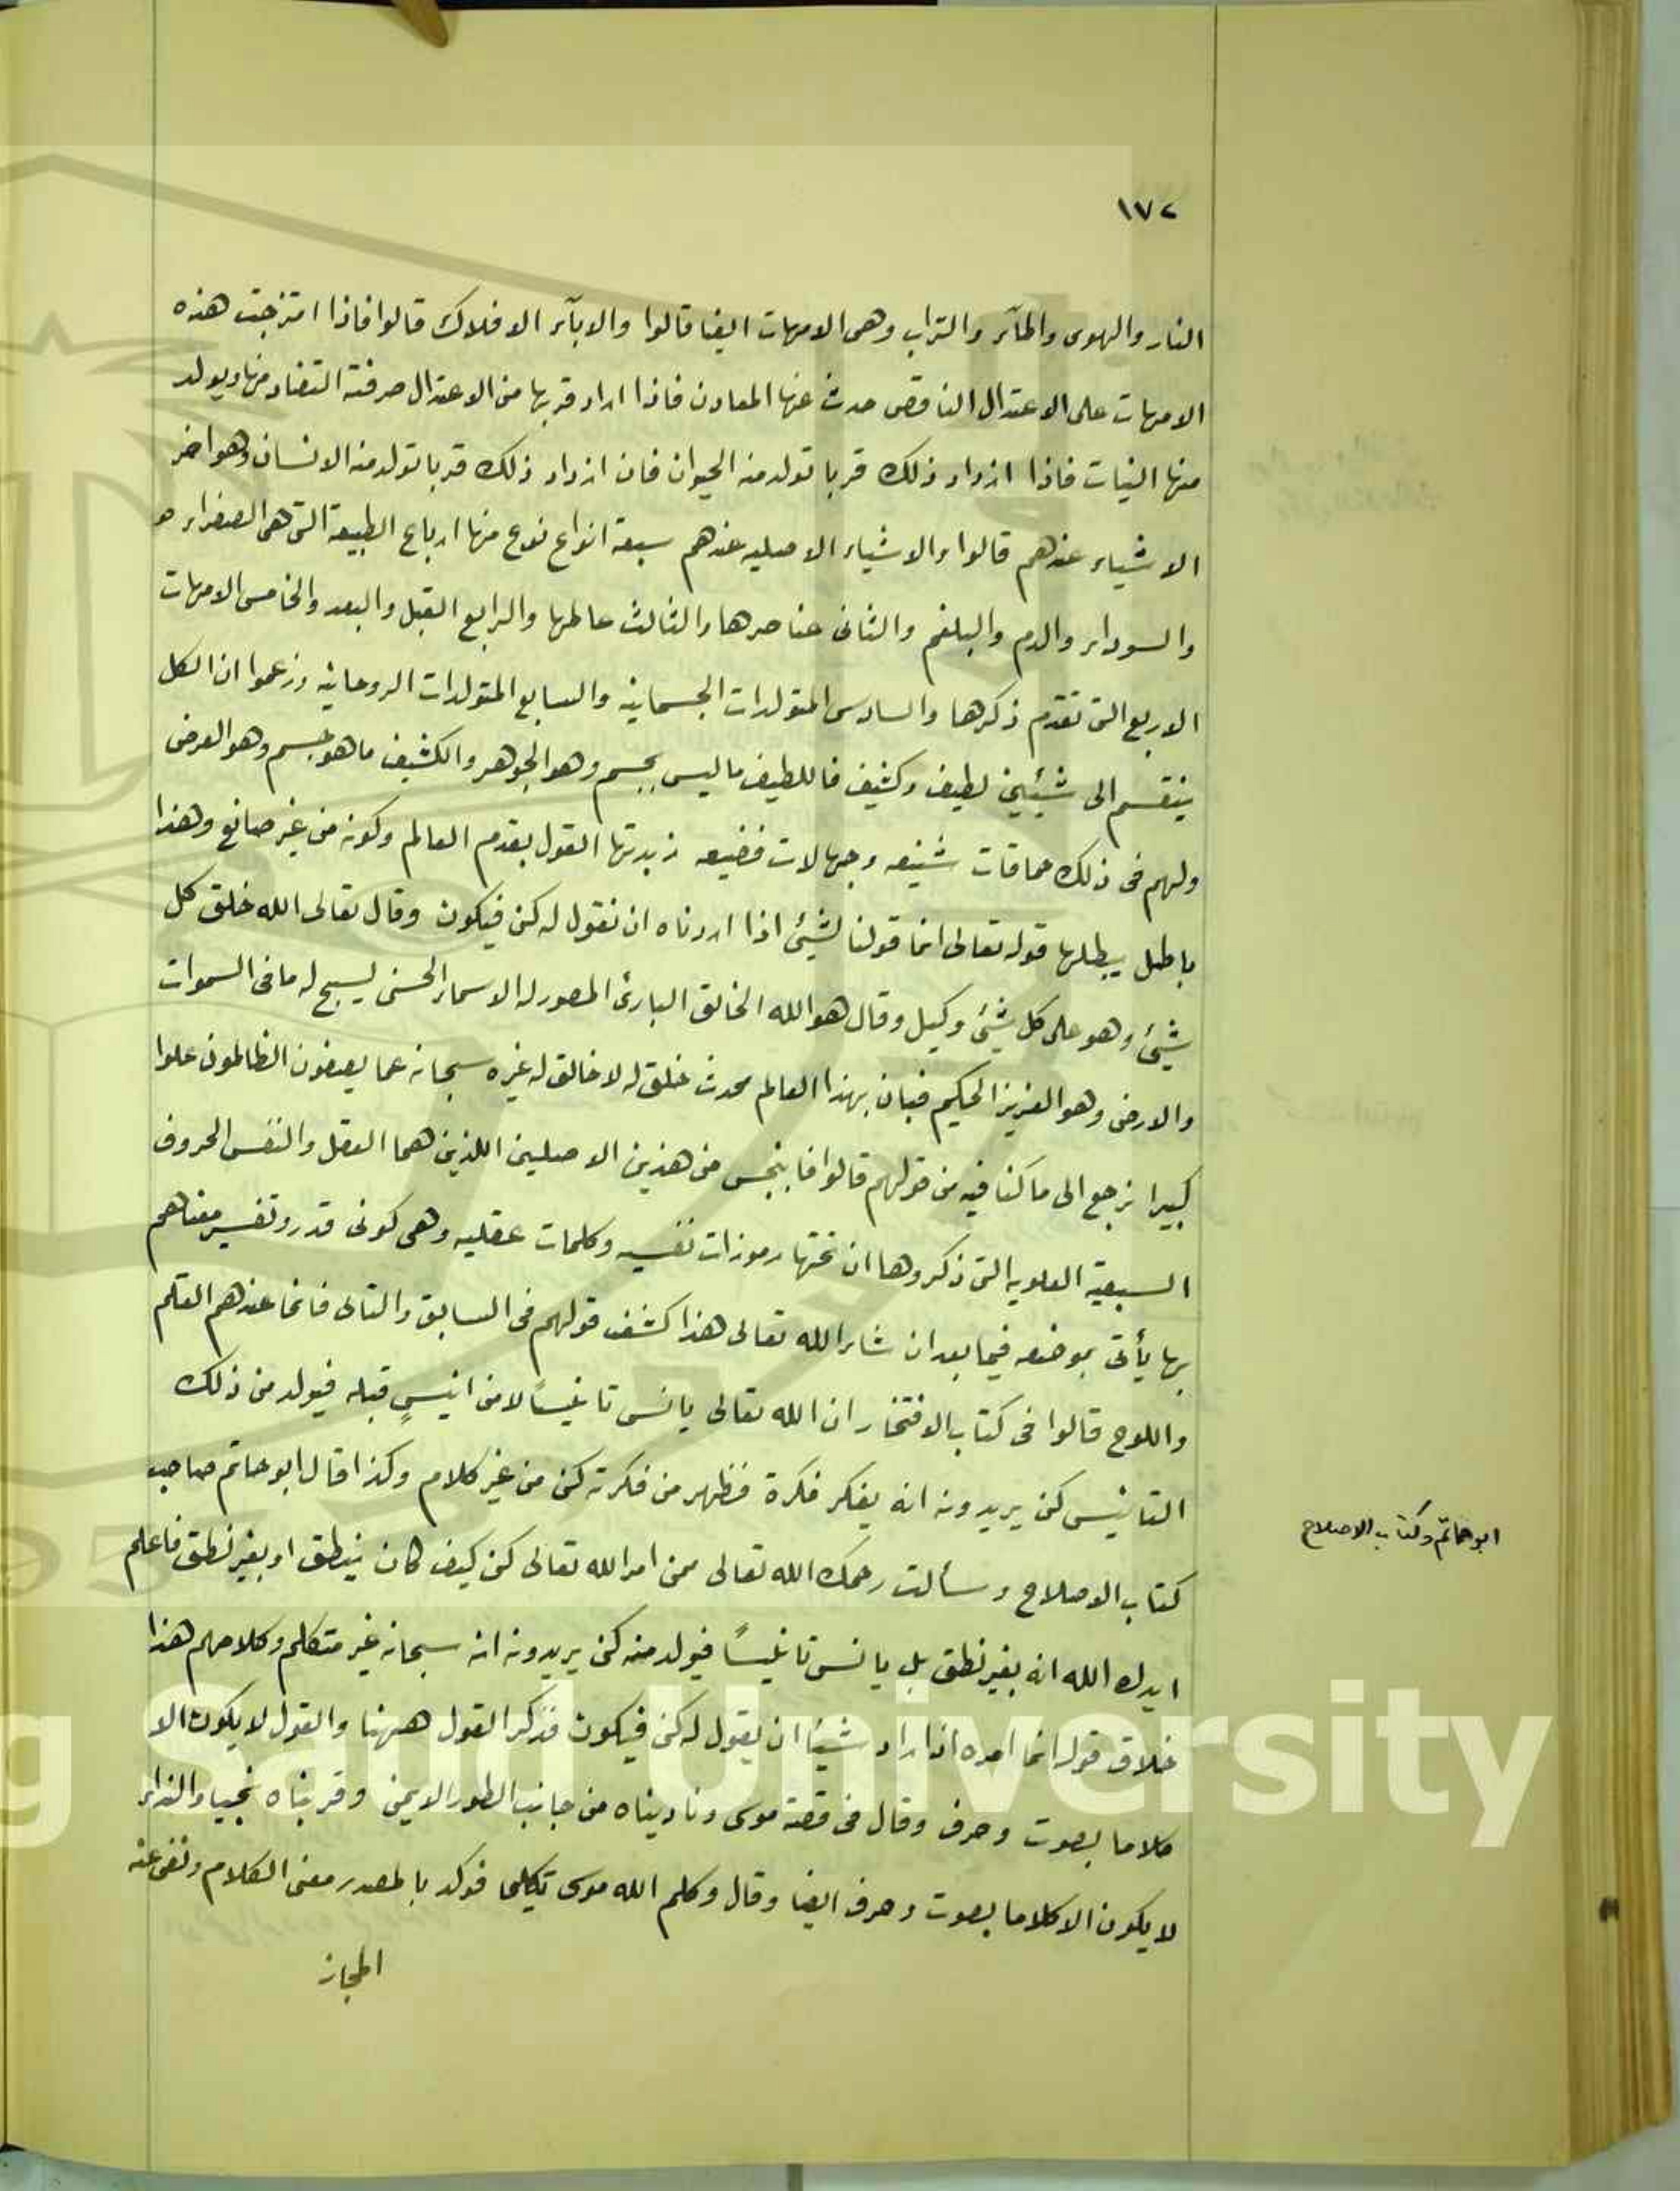 ١٧٢
النار والهوى والمآء والتراب وهى الامهات ايضا قالوا والابآء الافلاك قالوا فاذا امتزجت هذه
الامهات على الاعتدال الناقص حدث عنها المعادن فاذا ازداد قربها من الاعتدال صرفته التضاد منها ويولد
منها النبات فاذا ازداد ذلك قربا تولد منه الحيوان فان ازداد ذلك قربا تولد منه الانسان وهو اخر
الاشياء عندهم قالوا والاشياء الاصليه عندهم سبعة انواع نوع منها ارباع الطبيعة التى هى الصفراء
والسوداء والدم والبلغم والثانى عناصرها والثالث عالمها والرابع القبل والبعد والخامس الامهات
الاربع التى تقدم ذكرها والسادس المتولدات الجسمانيه والسابع المتولدات الروحانيه وزعموا ان الكل
ينقسم الى شيئين لطيف وكثيف فاللطيف ماليس بجسم وهو الجوهر والكثيف ماهو جسم وهو العرض
ولهم فى ذلك حماقات شنيعه وجهالات فضيعه زبدتها القول بقدم العالم وكونه من غير صانع وهذا
باطل يبطلها قوله تعالى انما قولنا لشيئ اذا اردناه ان نقول له كن فيكون وقال تعالى الله خلق كل
شيئ وهو على كل شيئ وكيل وقال هو الله الخالق البارئ المصور له الاسماء الحسنى يسبح له مافى السموات
والارض وهو العزيز الحكيم فبان بهذا العالم محدث خلق له لا خالق له غيره سبحانه عما يصفون الظالمون علوا
كبيرا نرجع الى ماكنا فيه من قولهم قالوا فانبجس من هذين الاصلين اللذين هما العقل والنفس الحروف
السبعية العلويه التى ذكروها ان تحتها رموزات نفسيه وكلمات عقليه وهى كونى قدر وتفسير معناهم
بها يأتى بموضعه فيما بعد ان شاء الله تعالى هذا كشف قولهم فى السابق والتالى فانما عندهم القلم
واللوح قالوا فى كتاب الافتخار ان الله تعالى يانس تانيسًا لا من انيسٍ قبله فيولد من ذلك
التانيس كن يريدونه انه يفكر فكرة فظهر من فكرته كن من غير كلام وكذا قال ابوحاتم صاحب
كتاب الاصلاح وسألت رحمك الله تعالى ممن امر الله تعالى كن كيف كان ينطق او بغير نطق فاعلم
ايدك الله انه بغير نطق بل يانس تانيسًا فيولد منه كن يريدونه انه سبحانه غير متكلم وكلامهم هذا
خلاق قوله انما امره اذا اراد شيئا ان يقول له كن فيكون فذكر القول هىهنا والقول لا يكون الا
كلاما بصوت وحرف وقال فى قصة موسى وناديناه من جانب الطور الايمن وقربناه نجيا والنداء
لا يكون الا كلاما بصوت وحرف ايضا وقال وكلم الله موسى تكليما فوكد بالمصدر معنى الكلام ونفى عنه
المجاز
ابوحاتم وكتاب الاصلاح
g Saud University